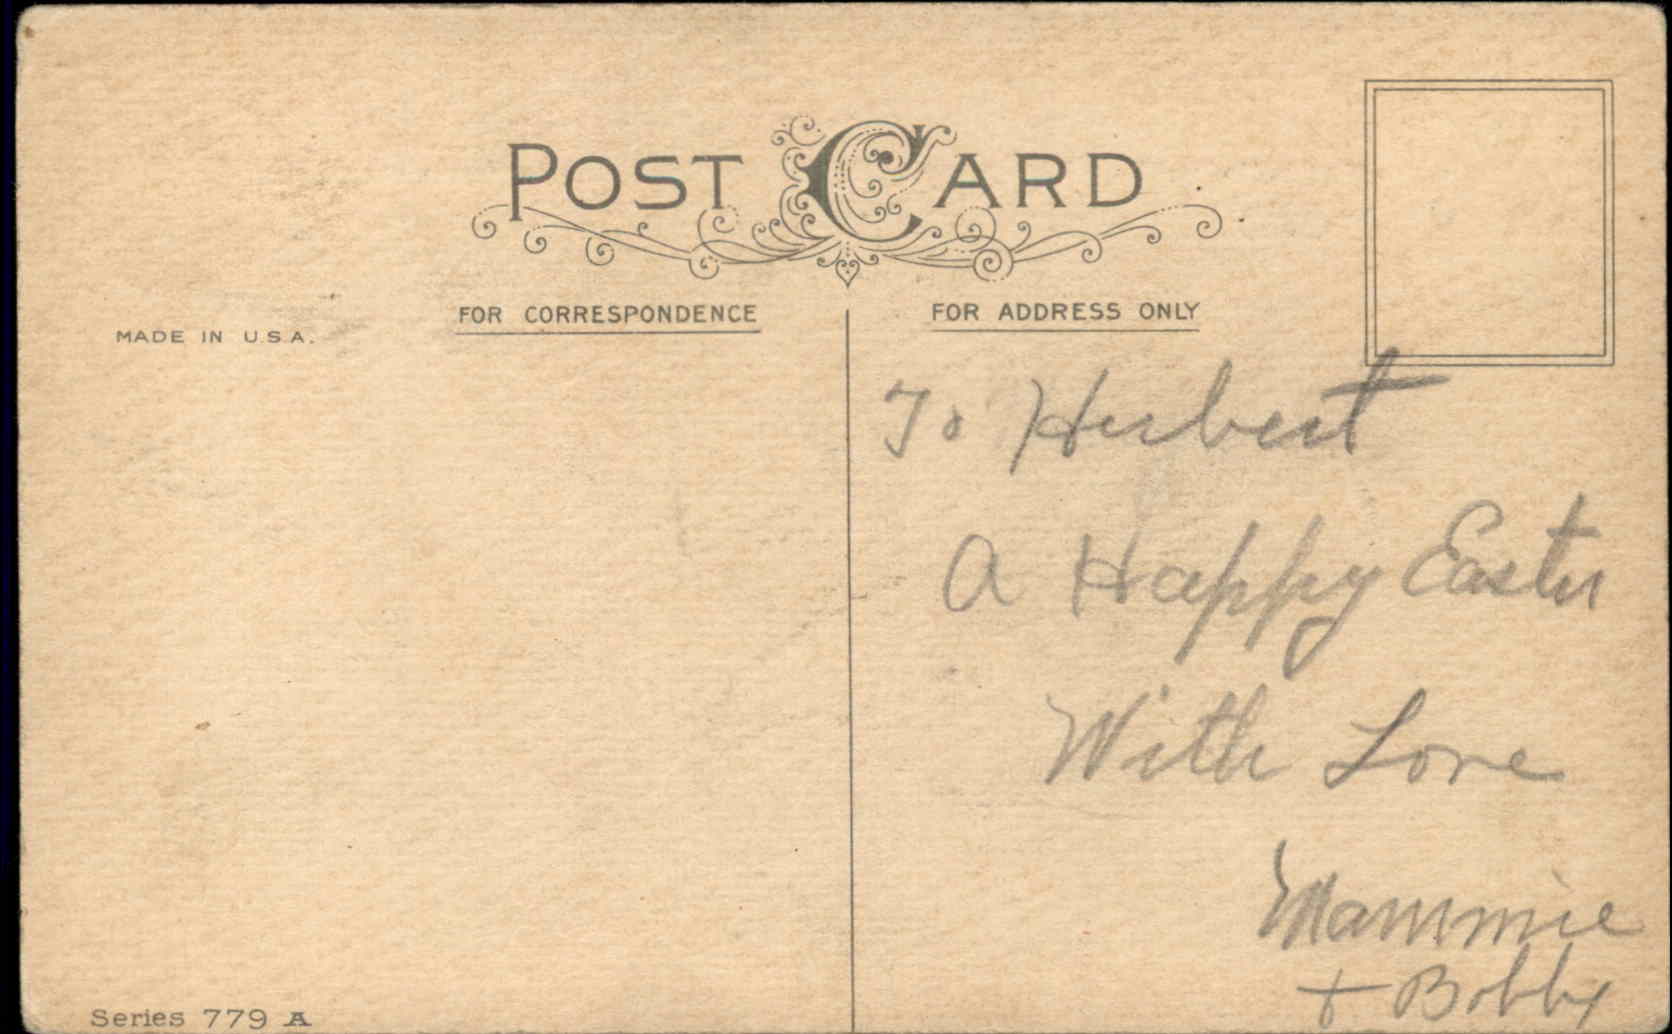 POST CARD
FOR CORRESPONDENCE
FOR ADDRESS ONLY
MADE IN U.S.A.
To Herbert
A Happy Easter
With Love
Mammie
+ Bobby
Series 779 A